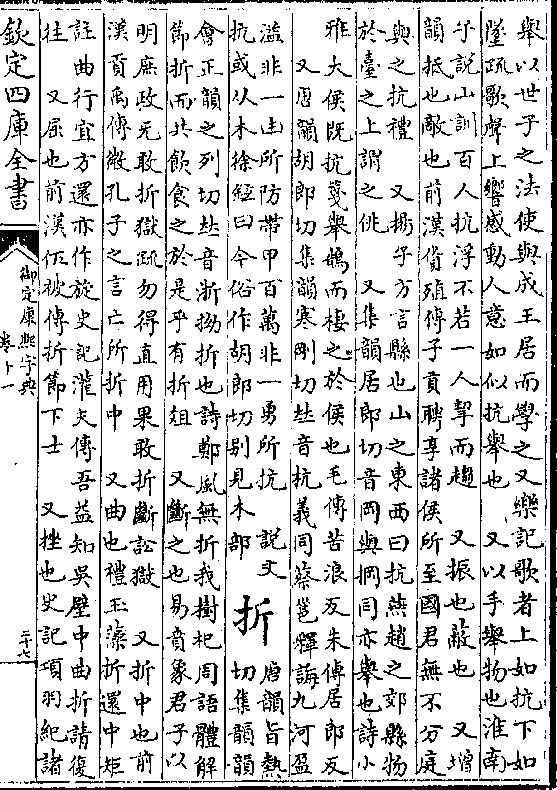 舉以世子之法使與成王居而學之又樂記歌者上如抗下如
墜疏歌聲上響感動人意如似抗舉也　又以手舉物也淮南
子說山訓百人抗浮不若一人挈而趨　又振也蔽也　又增
韻抵也敵也前漢貨殖傳子貢聘享諸侯所至國君無不分庭
與之抗禮　又揚子方言縣也山之東西曰抗燕趙之郊縣物
於臺之上謂之佻　又集韻居郎切音岡與掆同亦舉也詩小
雅大侯既抗箋舉鵠而棲之於侯也毛傳苦浪反朱傳居郎反
又唐韻胡郎切集韻寒剛切𠀤音杭義同蔡邕釋誨九河盈
溢非一凷所防帶甲百萬非一勇所抗　說文
抗或从木徐鉉曰今俗作胡郎切别見木部
折
唐韻旨熱
切集韻韻
會正韻之列切𠀤音浙拗折也詩鄭風無折我樹杞周語體解
節折而共飲食之於是乎有折俎　又斷之也易賁象君子以
明庶政无敢折獄疏勿得直用果敢折斷訟獄　又折中也前
漢貢禹傳微孔子之言亡所折中　又曲也禮玉藻折還中矩
註曲行宜方還亦作旋史記灌夫傳吾益知吳壁中曲折請復
往　又屈也前漢伍被傳折節下士　又挫也史記項羽紀諸
欽定四庫全書
御定康熙字典
卷十一
三十七